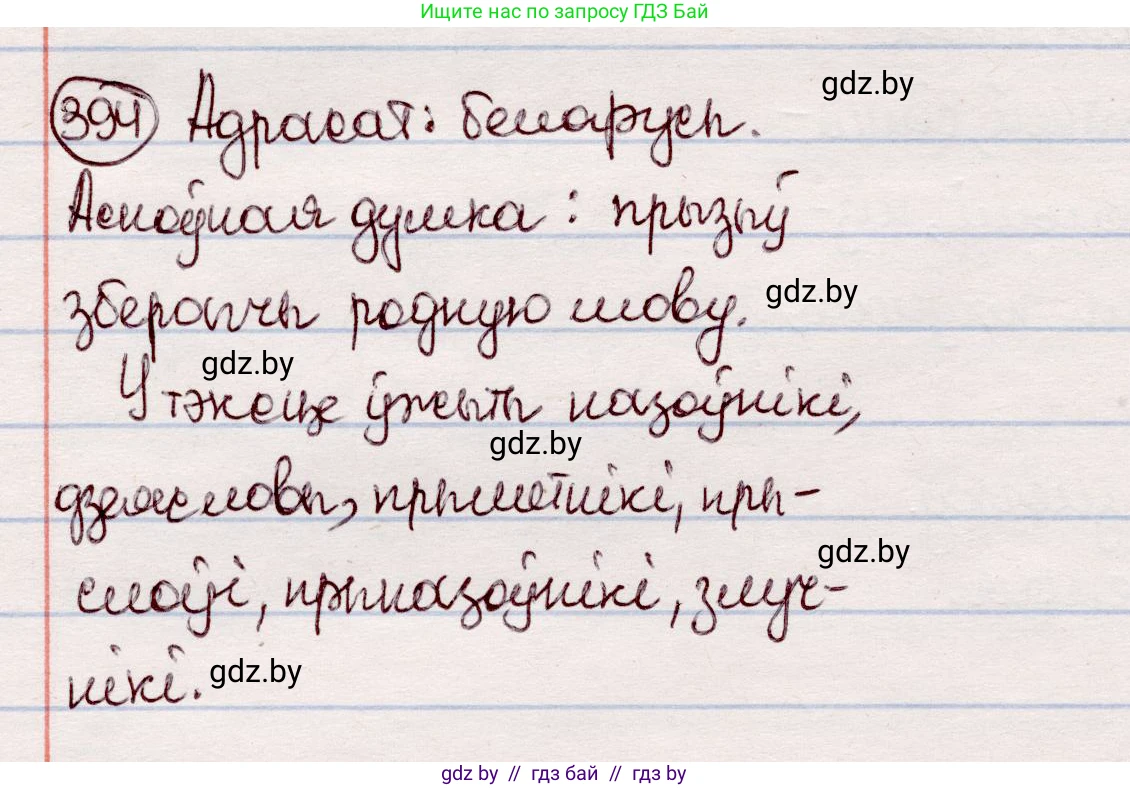 Ищите нас по запросу ГДЗ Бай
gdz.by
394 Адрасат: беларусы.
Асноўная думка: прызыў
gdz.by
зберагчы родную мову.
gdz.by
У тэксце ўжыты назоўнікі,
gdz.by
дзеясловы, прыметнікі, пры-
gdz.by
слоўі, прыназоўнікі, злуч-
нікі.
gdz.by
gdz by // гдз бай // гдз by